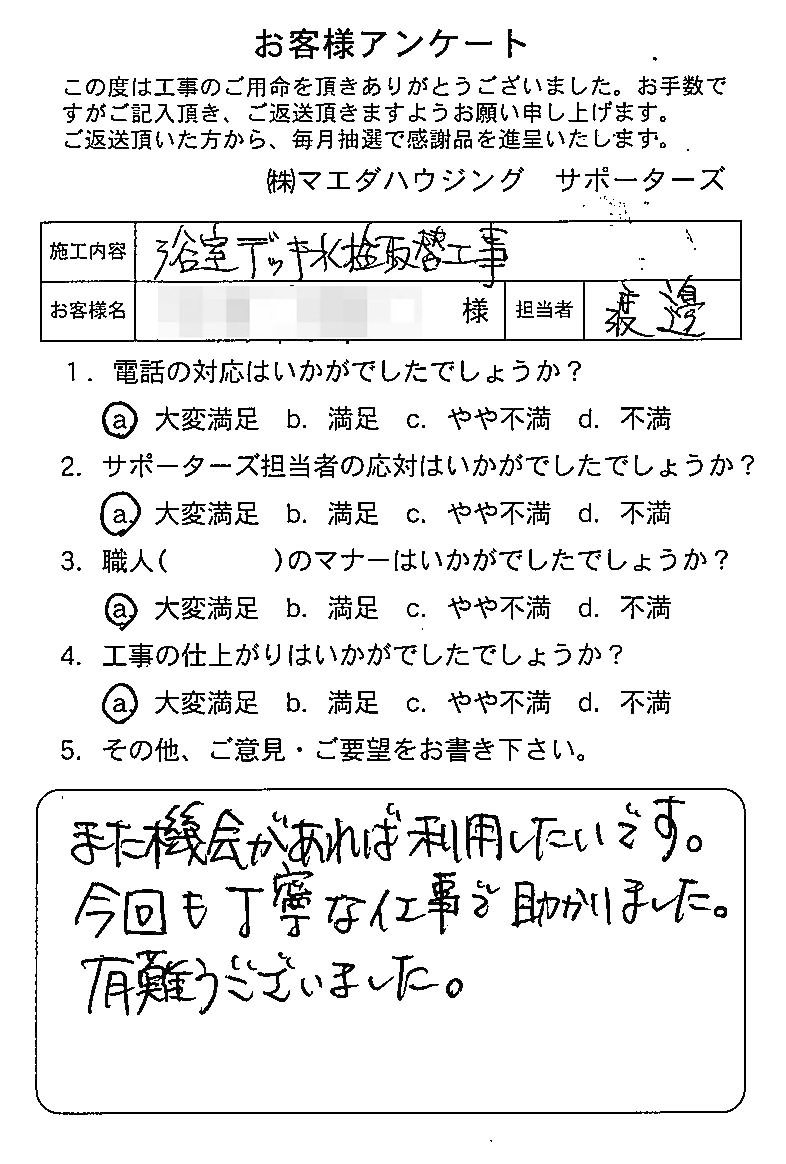 お客様アンケート
この度は工事のご用命を頂きありがとうございました。お手数で
すがご記入頂き、ご返送頂きますようお願い申し上げます。
ご返送頂いた方から、毎月抽選で感謝品を進呈いたします。
㈱マエダハウジング　サポーターズ
施工内容 浴室デッキ水栓取替工事
お客様名 様 担当者 渡邉
1. 電話の対応はいかがでしたでしょうか？
a. 大変満足 b. 満足 c. やや不満 d. 不満
2. サポーターズ担当者の応対はいかがでしたでしょうか？
a. 大変満足 b. 満足 c. やや不満 d. 不満
3. 職人(　　　　)のマナーはいかがでしたでしょうか？
a. 大変満足 b. 満足 c. やや不満 d. 不満
4. 工事の仕上がりはいかがでしたでしょうか？
a. 大変満足 b. 満足 c. やや不満 d. 不満
5. その他、ご意見・ご要望をお書き下さい。
また機会があれば利用したいです。
今回も丁寧な仕事で助かりました。
有難うございました。